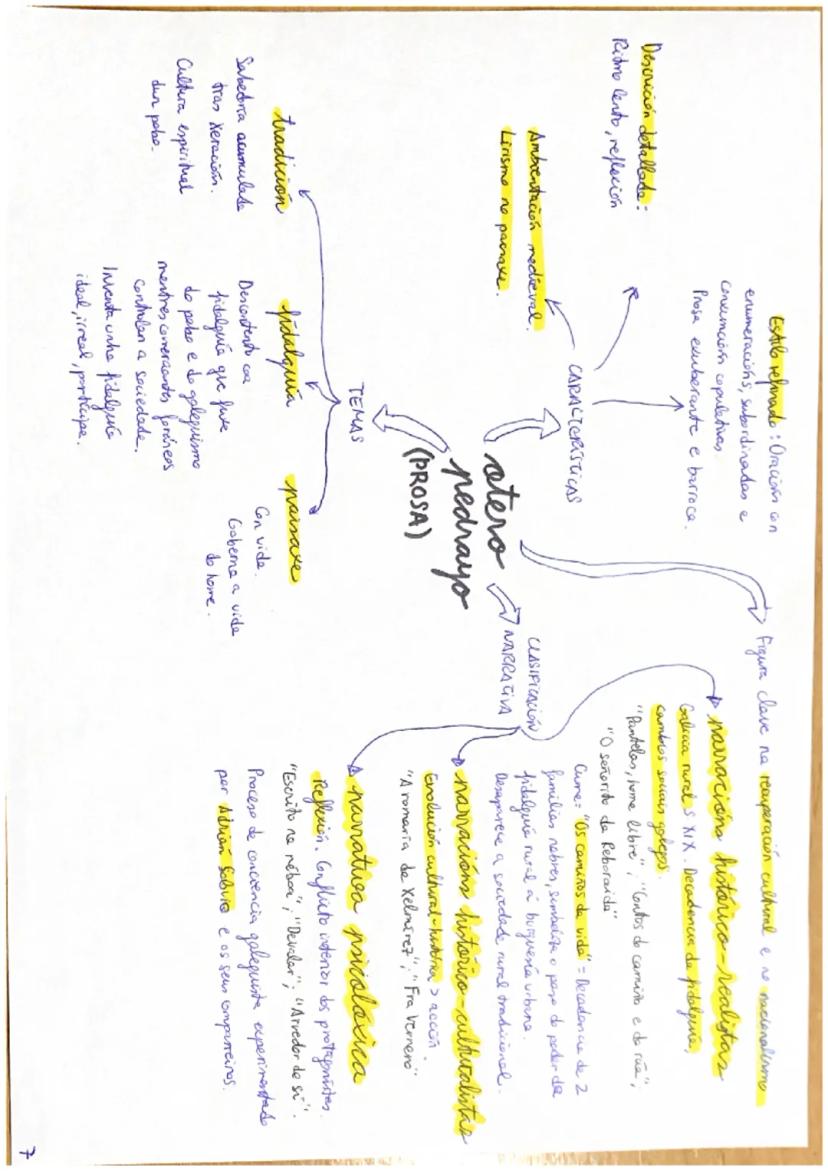 otero
pedrayo
(PROSA)
Figura clave na recuperación cultural e no nacionalismo
CARACTERÍSTICAS
Estilo refinado: Oracións con
enumeracións, subordinadas e
conxunción copulativas
Prosa exuberante e barroca.
Descrición detallada:
Ritmo lento, reflexión
Ambientación medieval.
Lirismo na paisaxe.
TEMAS
tradición
Sabedoría acumulada
tras xeración.
Cultura espiritual
dun pobo.
fidalguía
Descontento coa
fidalguía que fuxe
do pobo e do galeguismo
mentres comerciantes foráneos
controlan a sociedade.
Inventa unha fidalguía
ideal, irreal, partícipe.
paisaxe
Con vida.
Goberna a vida
do home.
CLASIFICACIÓN
NARRATIVA
narracións histórico-realistas
Galicia rural S XIX. Decadencia da fidalguía,
cambios sociais galegos.
"Pantelas, home libre"; "Contos do camiño e da rúa";
"O señorito da Reboraina"
Cume: "Os camiños da vida" = Decadencia de 2
familias nobres, simboliza o paso do poder da
fidalguía rural á burguesía urbana.
Desaparece a sociedade rural tradicional.
narracións histórico-culturalistas
Evolución cultural-historia > acción.
"A romaría de Xelmírez"; "Fra Vernero"
narrativa psicolóxica
Reflexión. Conflicto interior dos protagonistas.
"Escrito na néboa"; "Devalar"; "Arredor de si".
Proceso de conciencia galeguista experimentado
por Adrián Solovio e os seus compañeiros.
7